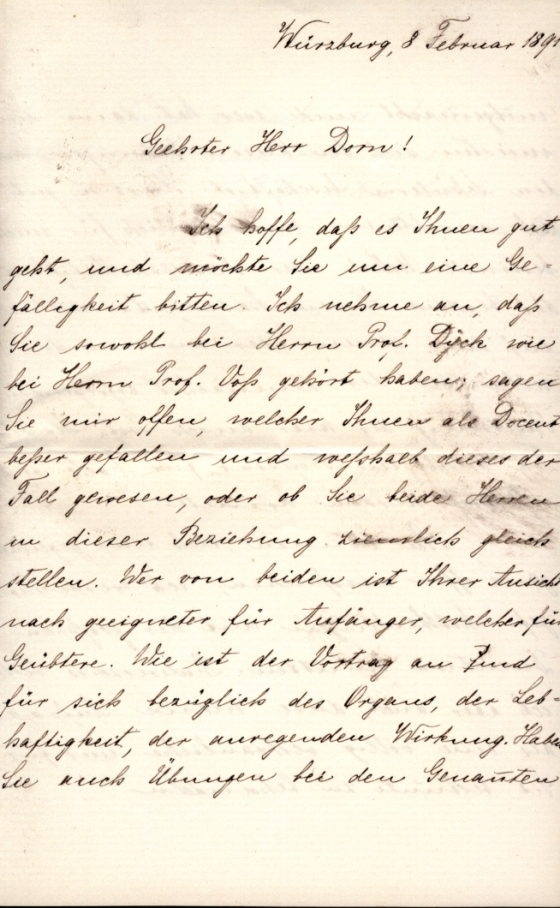 Würzburg, 8 Februar 189
Geehrter Herr Dorn!
Ich hoffe, daß es Ihnen gut
geht, und möchte Sie um eine Ge-
fälligkeit bitten. Ich nehme an, daß
Sie sowohl bei Herrn Prof. Dÿck wie
bei Herrn Prof. Voß gehört haben; sagen
Sie mir offen, welcher Ihnen als Docent
beßer gefallen und weßhalb dieses der
Fall gewesen, oder ob Sie beide Herren
in dieser Beziehung ziemlich gleich
stellen. Wer von beiden ist Ihrer Ansicht
nach geeigneter für Anfänger, welcher für
Geübtere. Wie ist der Vortrag an und
für sich bezüglich des Organs, der Leb-
haftigkeit, der anregenden Wirkung. Haben
Sie auch Übungen bei den Genañten